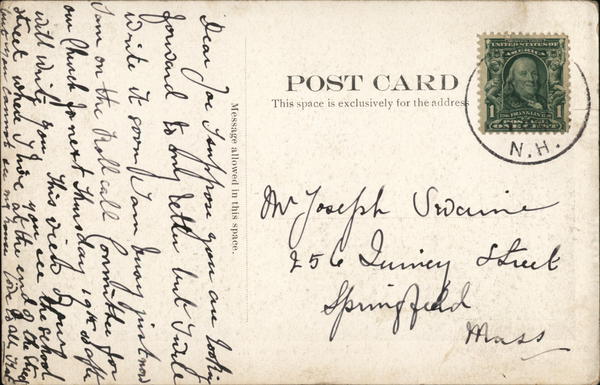 Dear Joe I suppose you are looking
forward to my letter but I will
write it soon I am busy just now
I am on the Roll call Committee for
our Church for next Thursday 19th & after
will write you. This week
you see the school
street where I live at the end of the street
but you cannot see my house Love to all
Message allowed in this space.
POST CARD
This space is exclusively for the address
UNITED STATES OF
AMERICA
1 1
FRANKLIN
POSTAGE
ONE CENT
N.H.
Mr Joseph Swaine
256 Quincy Street
Springfield
Mass